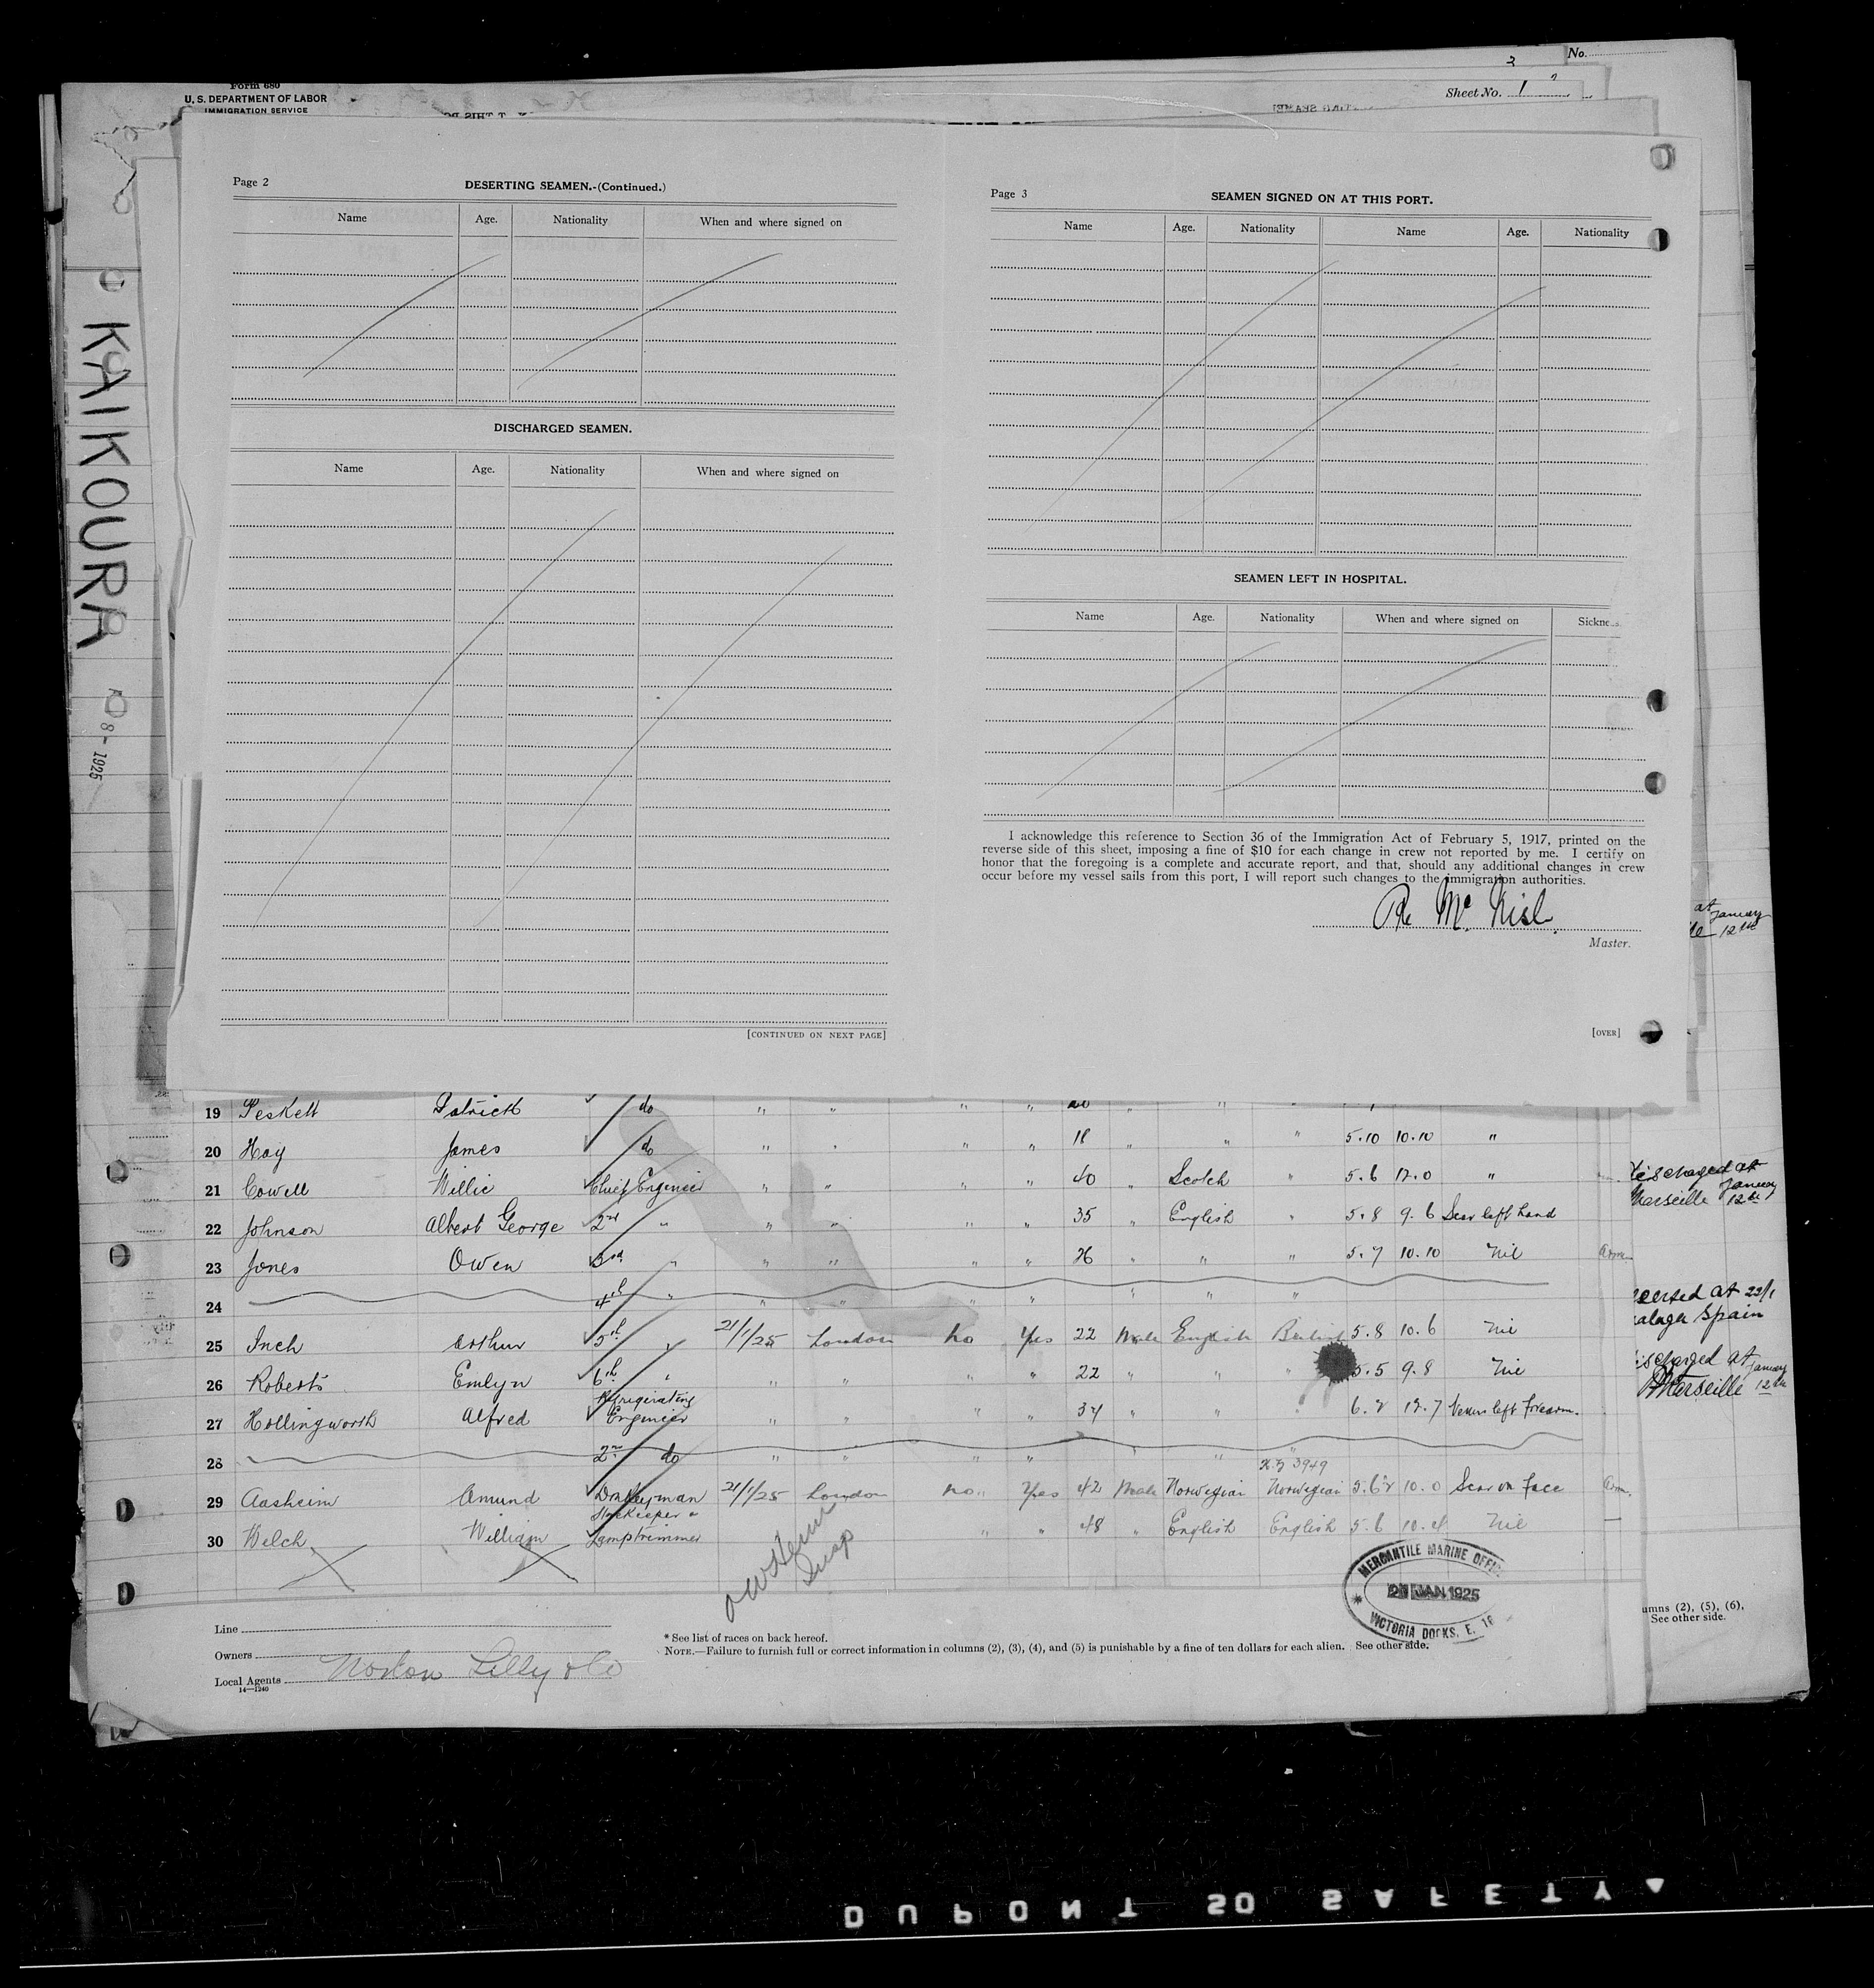 No.
3
Sheet No. 1
Form 680
U. S. DEPARTMENT OF LABOR
IMMIGRATION SERVICE
KAIKOURA
8 - 1925
Page 2
DESERTING SEAMEN.-(Continued.)
Name Age. Nationality When and where signed on
DISCHARGED SEAMEN.
Name Age. Nationality When and where signed on
[CONTINUED ON NEXT PAGE]
Page 3
SEAMEN SIGNED ON AT THIS PORT.
Name Age. Nationality Name Age. Nationality
SEAMEN LEFT IN HOSPITAL.
Name Age. Nationality When and where signed on Sickne
I acknowledge this reference to Section 36 of the Immigration Act of February 5, 1917, printed on the
reverse side of this sheet, imposing a fine of $10 for each change in crew not reported by me. I certify on
honor that the foregoing is a complete and accurate report, and that, should any additional changes in crew
occur before my vessel sails from this port, I will report such changes to the immigration authorities.
Master.
[OVER]
at January
12th
19 Peskett Patrick do " " " " "
20 Hay James do " " " " 18 " " " 5.10 10.10 "
21 Cowell Willie Chief Engineer " " " " 40 " Scotch " 5.6 12.0 "
22 Johnson Albert George 2nd " " " " " 35 " English " 5.8 9.6 Scar left hand
23 Jones Owen 3rd " " " " " 26 " " " 5.7 10.10 Nil
24 4th " " " " " " " "
25 Inch Arthur 5th " 21/1/25 London No Yes 22 Male English British 5.8 10.6 Nil
26 Roberts Emlyn 6th " " " " " 22 " " " 5.5 9.8 Nil
27 Hollingworth Alfred Refrigerating Engineer " " " " 34 " " " 6.2 12.7 left forearm.
28 2nd do " " " " " " "
29 Aasheim Amund Donkeyman 21/1/25 London no Yes 42 Male Norwegian Norwegian 5.6½ 10.0 Scar on face
30 Welch William Storekeeper & Lamptrimmer " " 48 " English English 5.6 10.4 Nil
discharged at
Marseille January 12th
22/1
Spain
discharged at
Marseille January 12th
MERCANTILE MARINE OFFICE
JAN 1925
VICTORIA DOCKS, E. 16
Line
Owners
Local Agents Norton Lilly & Co
14—1240
* See list of races on back hereof.
NOTE.—Failure to furnish full or correct information in columns (2), (3), (4), and (5) is punishable by a fine of ten dollars for each alien. See other side.
umns (2), (5), (6),
See other side.
DUPONT 50 SAFETY